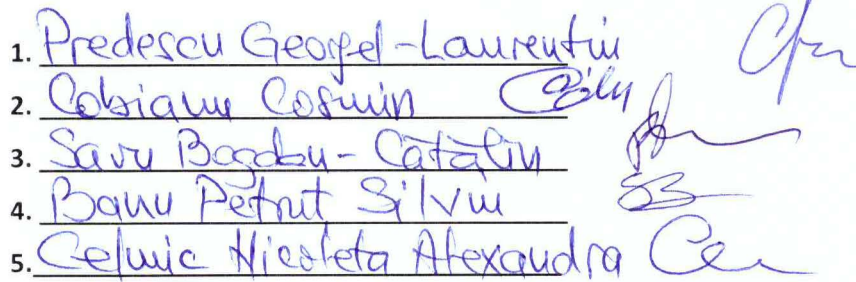 1. Predescu Georgel-Laurentiu
2. Cobianu Cosmin
3. Savu Bogdan-Cătălin
4. Banu Petrut Silviu
5. Nicoleta Alexandra